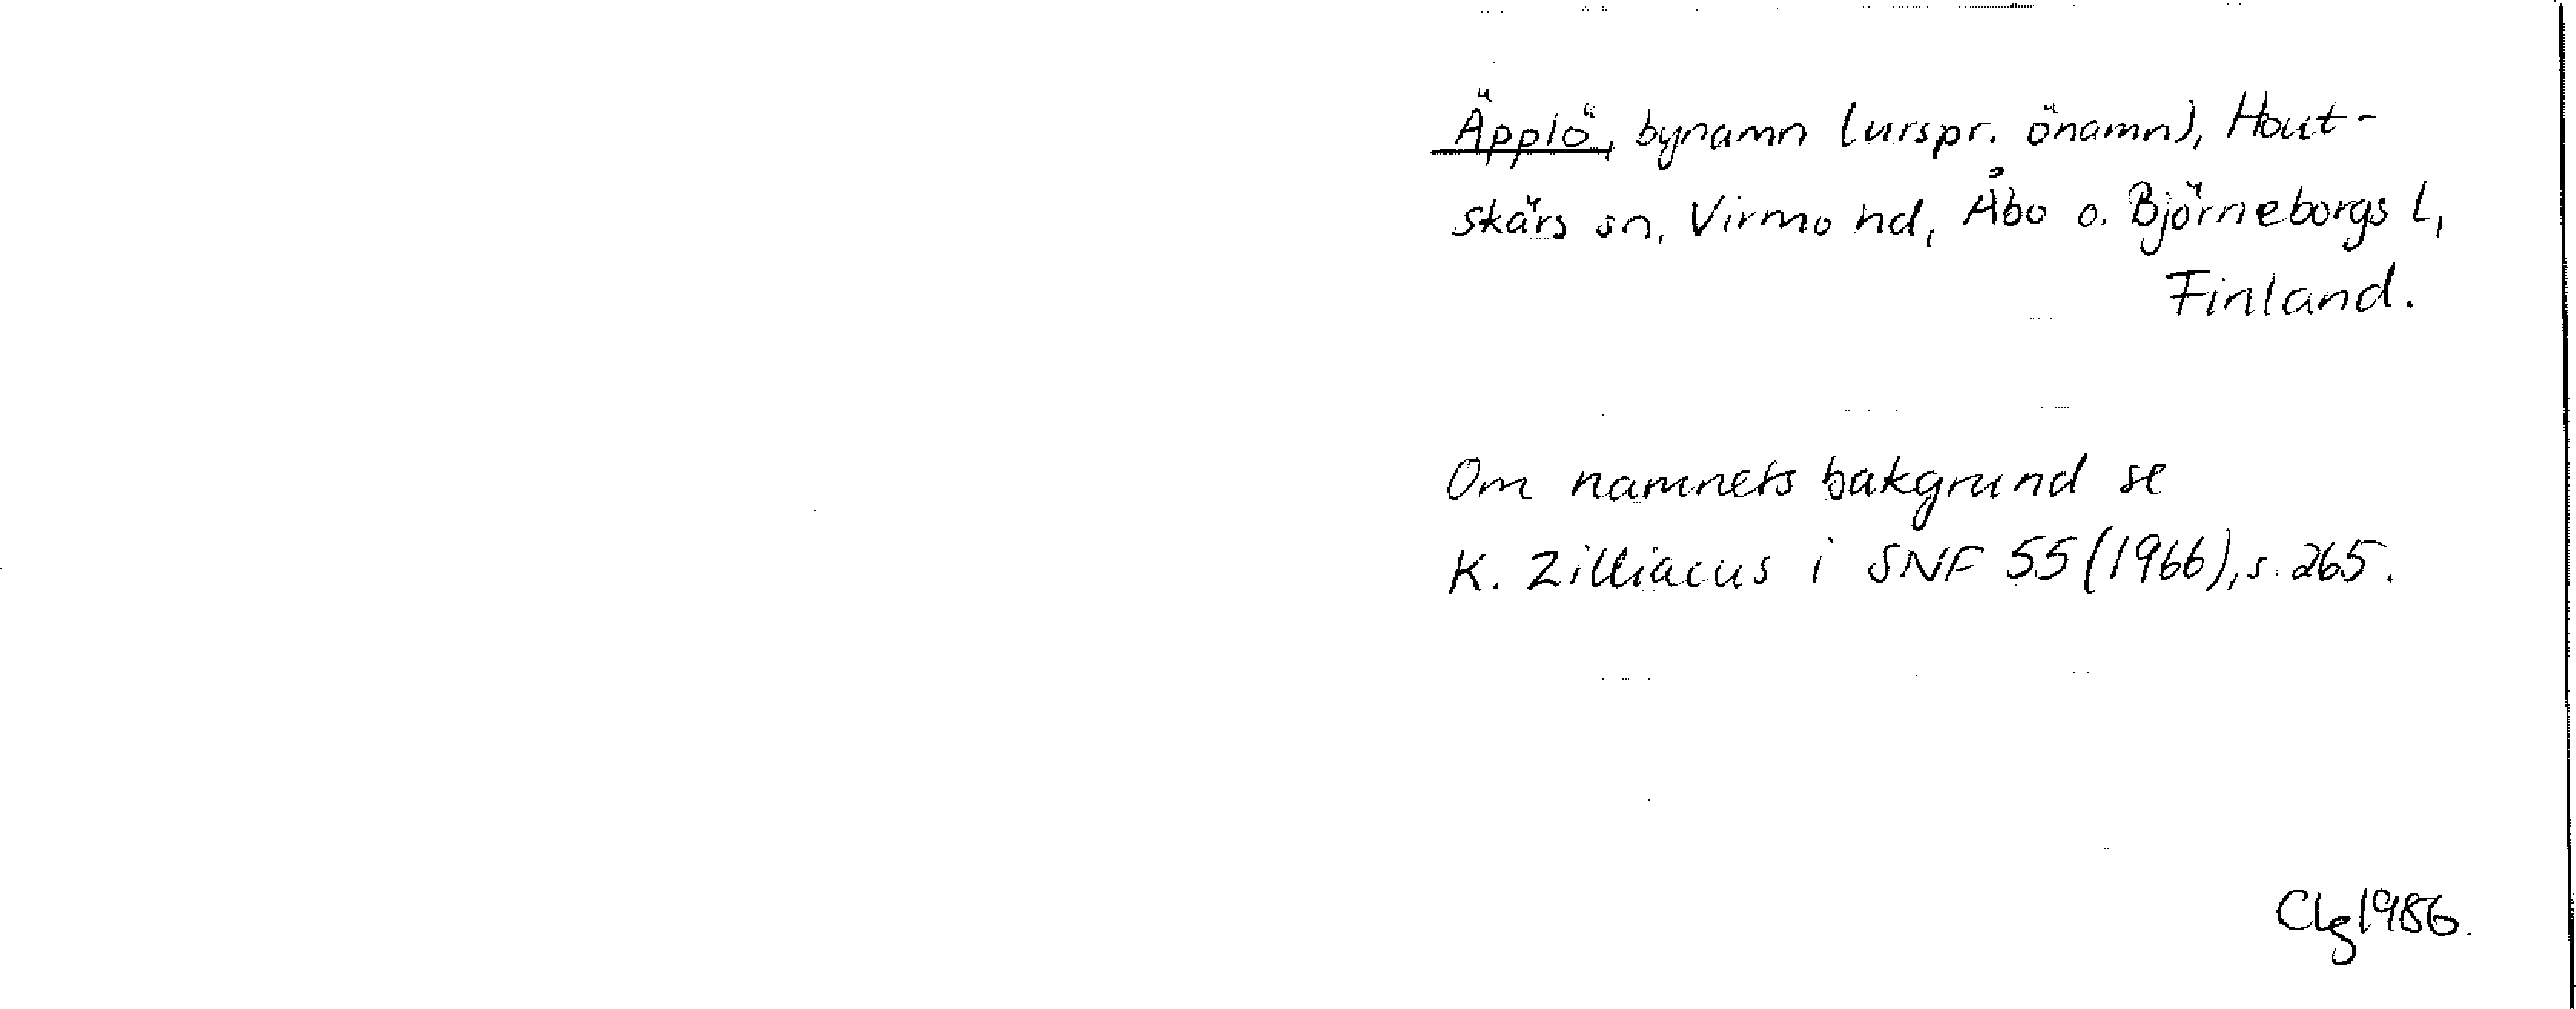 Äpplö, bynamn (urspr. önamn), Hout-
skärs sn, Virmo hd, Åbo o. Björneborgs l,
Finland.
Om namnets bakgrund se
K. Zilliacus i SNF 55 (1966), s. 265.
Clg 1986.